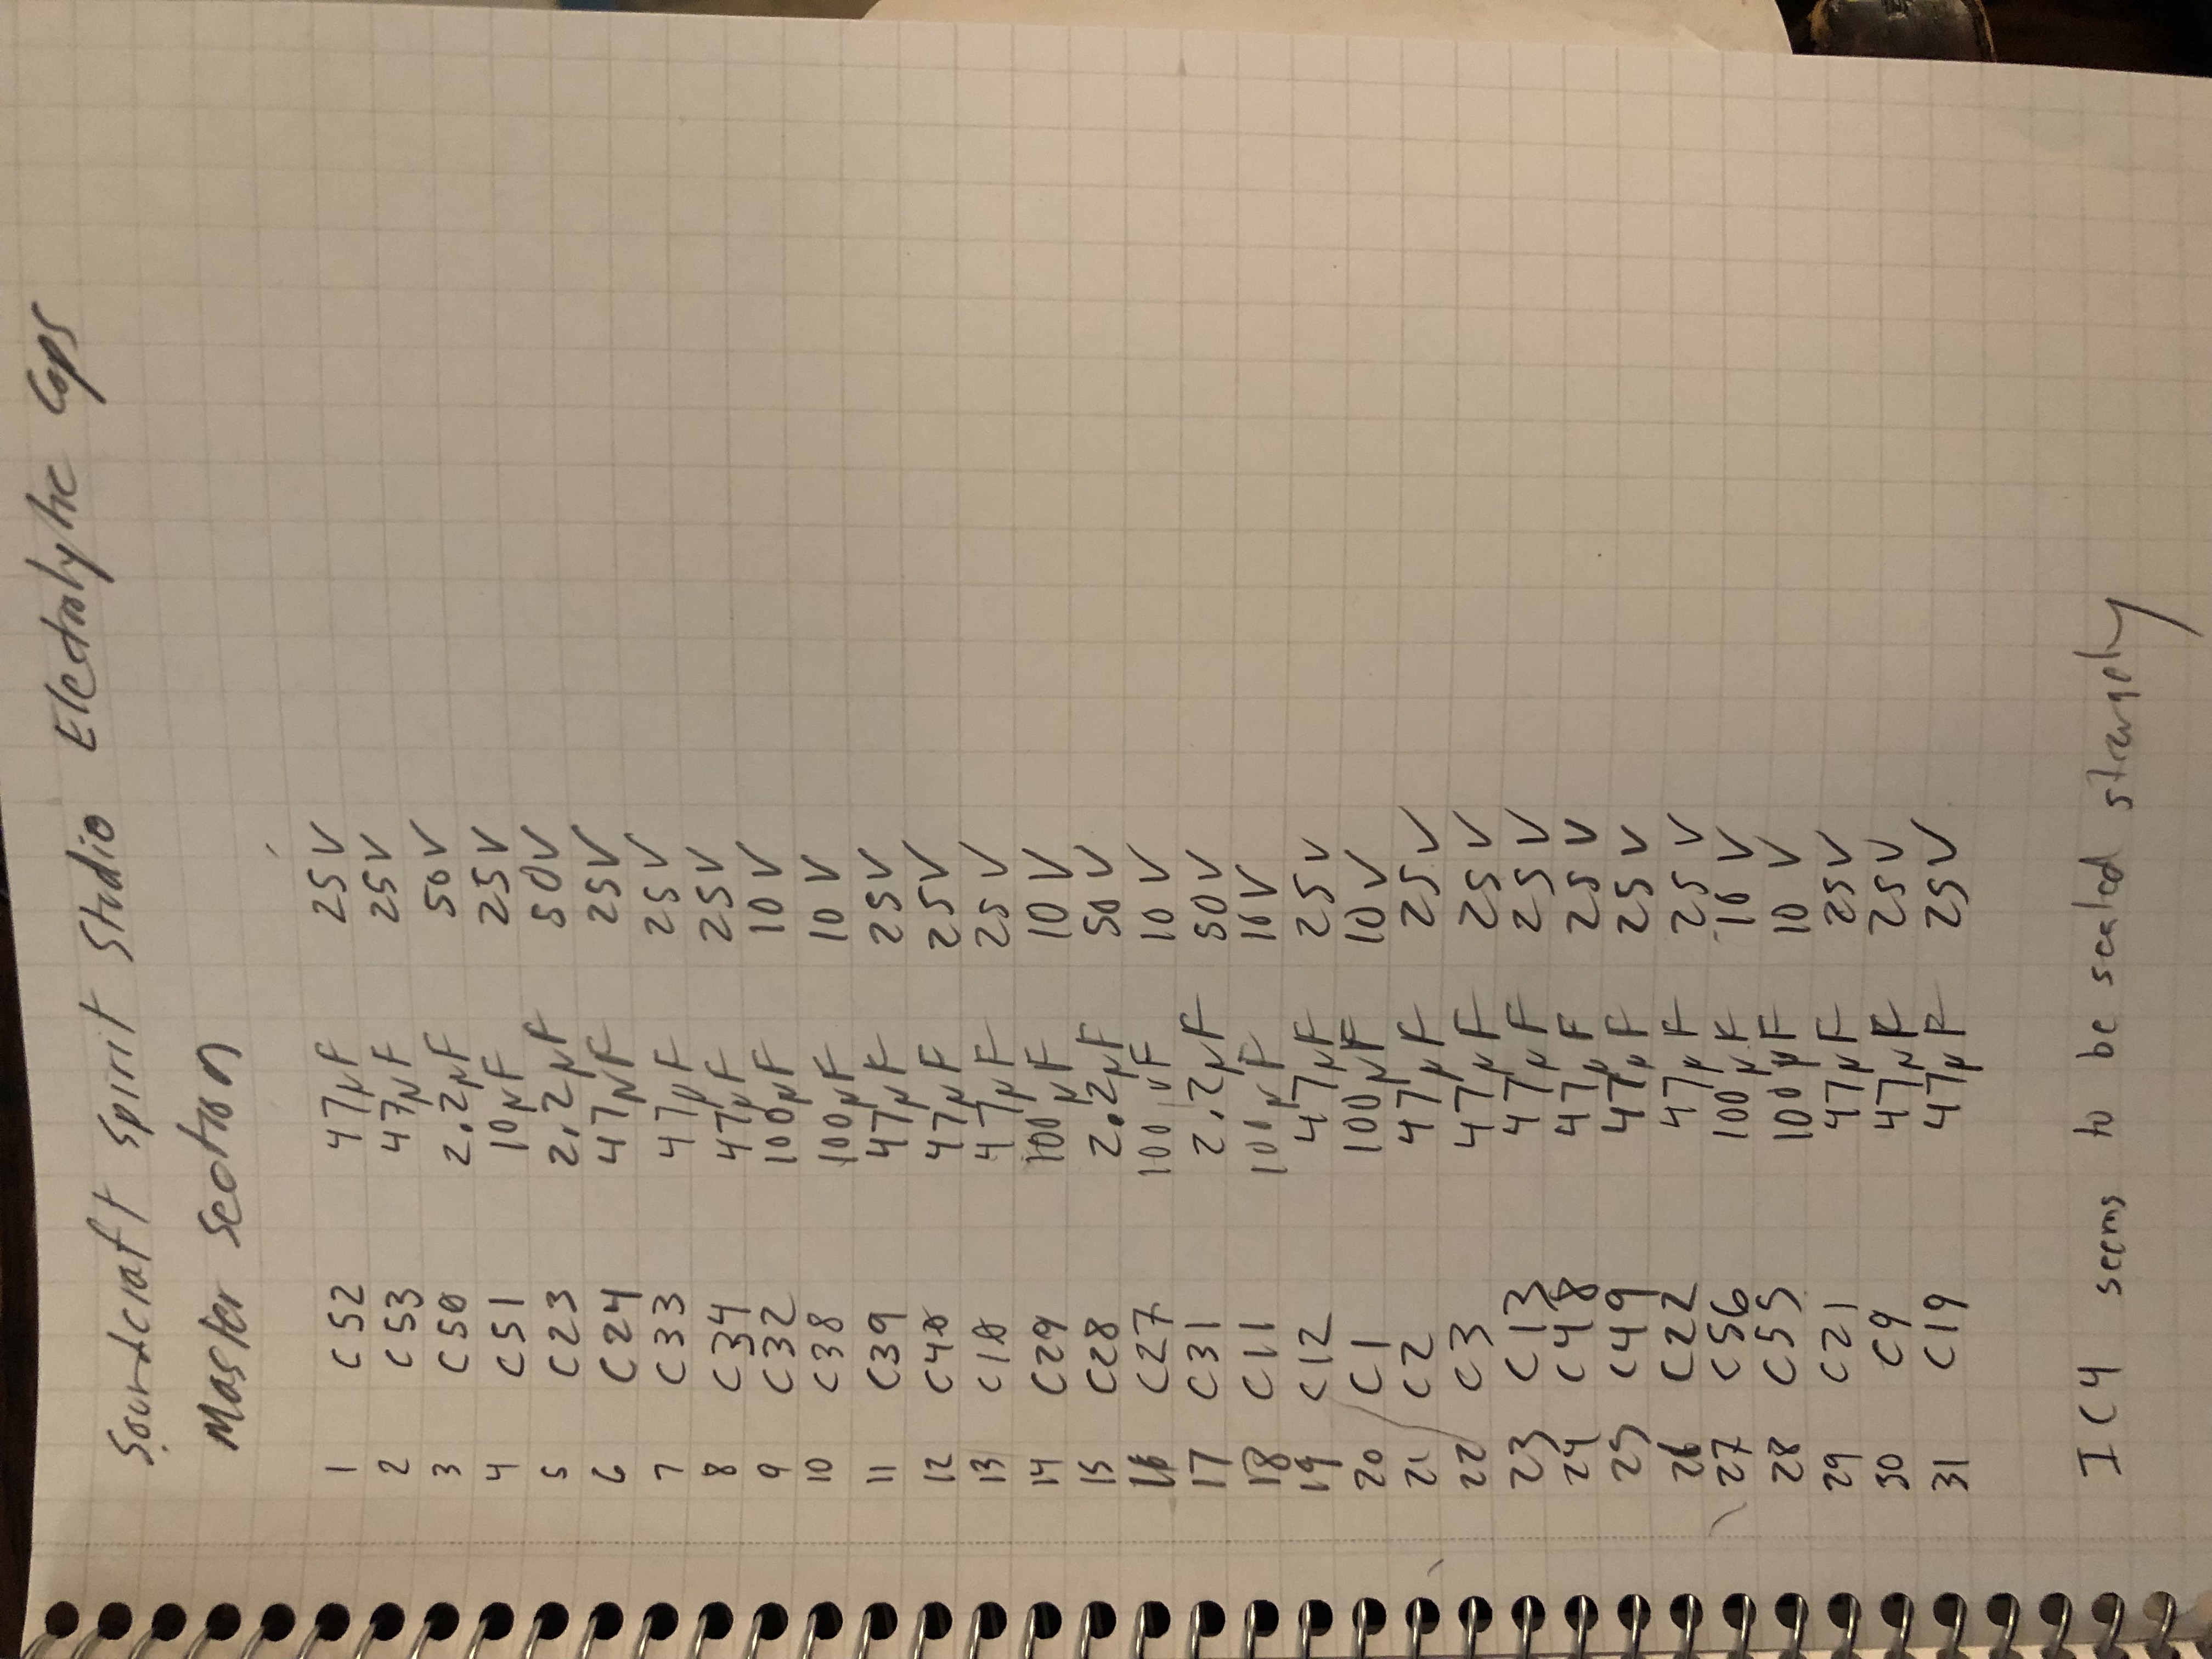 Soundcraft Spirit Studio Electrolytic Caps
Master Section
1 C52 47µF 25V
2 C53 47µF 25V
3 C50 2.2µF 50V
4 C51 10µF 25V
5 C23 2.2µF 50V
6 C24 47µF 25V
7 C33 47µF 25V
8 C34 47µF 25V
9 C32 100µF 10V
10 C38 100µF 10V
11 C39 47µF 25V
12 C40 47µF 25V
13 C10 47µF 25V
14 C29 100µF 10V
15 C28 2.2µF 50V
16 C27 100µF 10V
17 C31 2.2µF 50V
18 C11 100µF 10V
19 C12 47µF 25V
20 C1 100µF 10V
21 C2 47µF 25V
22 C3 47µF 25V
23 C13 47µF 25V
24 C48 47µF 25V
25 C49 47µF 25V
26 C22 47µF 25V
27 C56 100µF 10V
28 C55 100µF 10V
29 C21 47µF 25V
30 C9 47µF 25V
31 C19 47µF 25V
IC4 seems to be sealed strangely